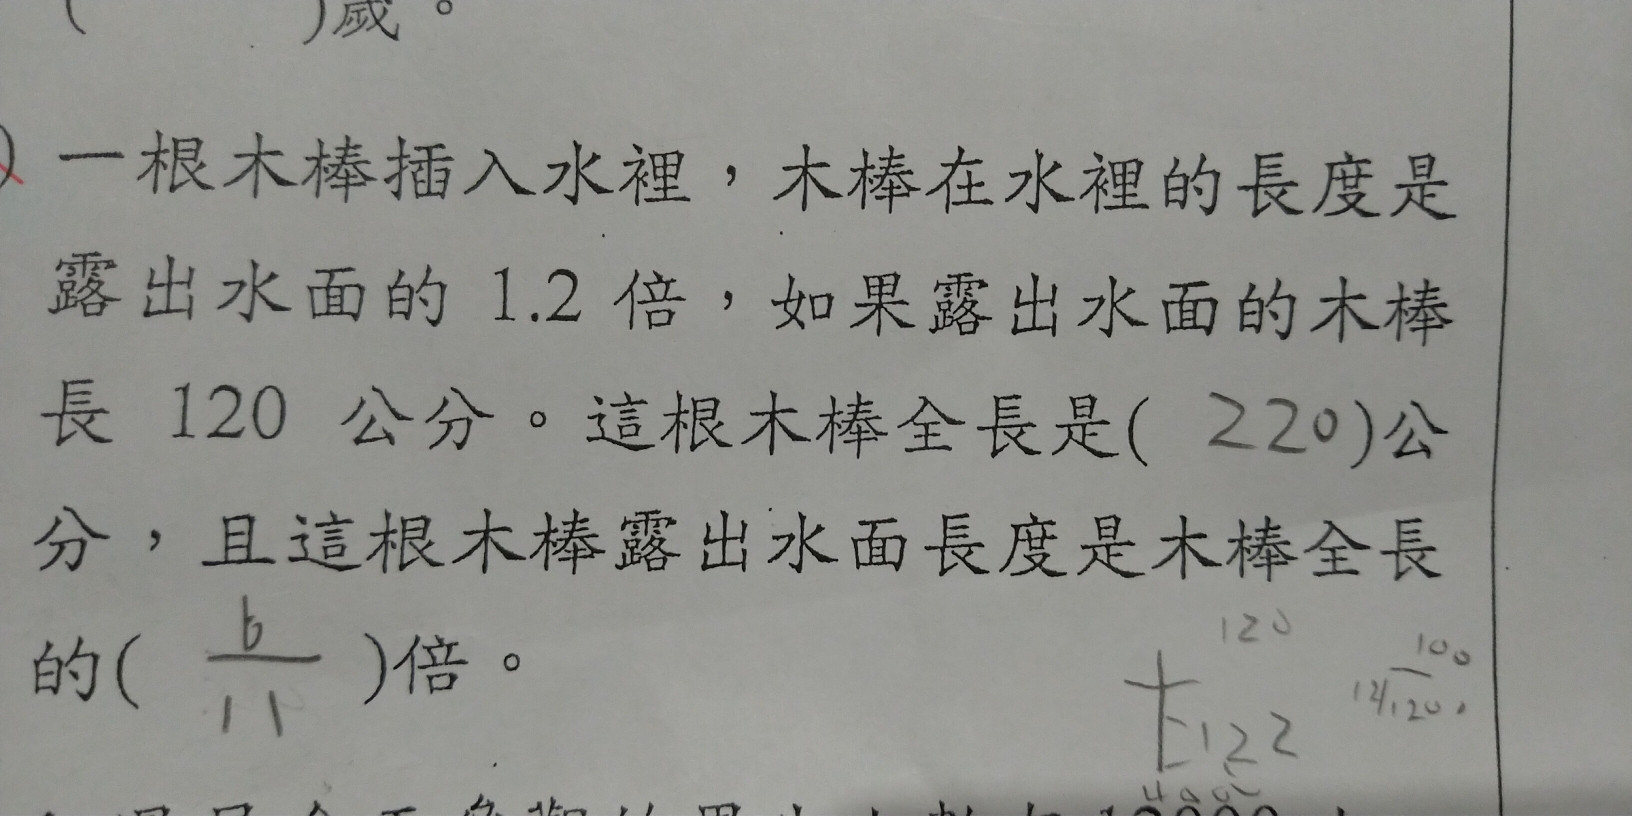 (　　　)歲。
)一根木棒插入水裡，木棒在水裡的長度是
露出水面的 1.2 倍，如果露出水面的木棒
長 120 公分。這根木棒全長是( 220 )公
分，且這根木棒露出水面長度是木棒全長
的( 6/11 )倍。
120
100
12/120.
122